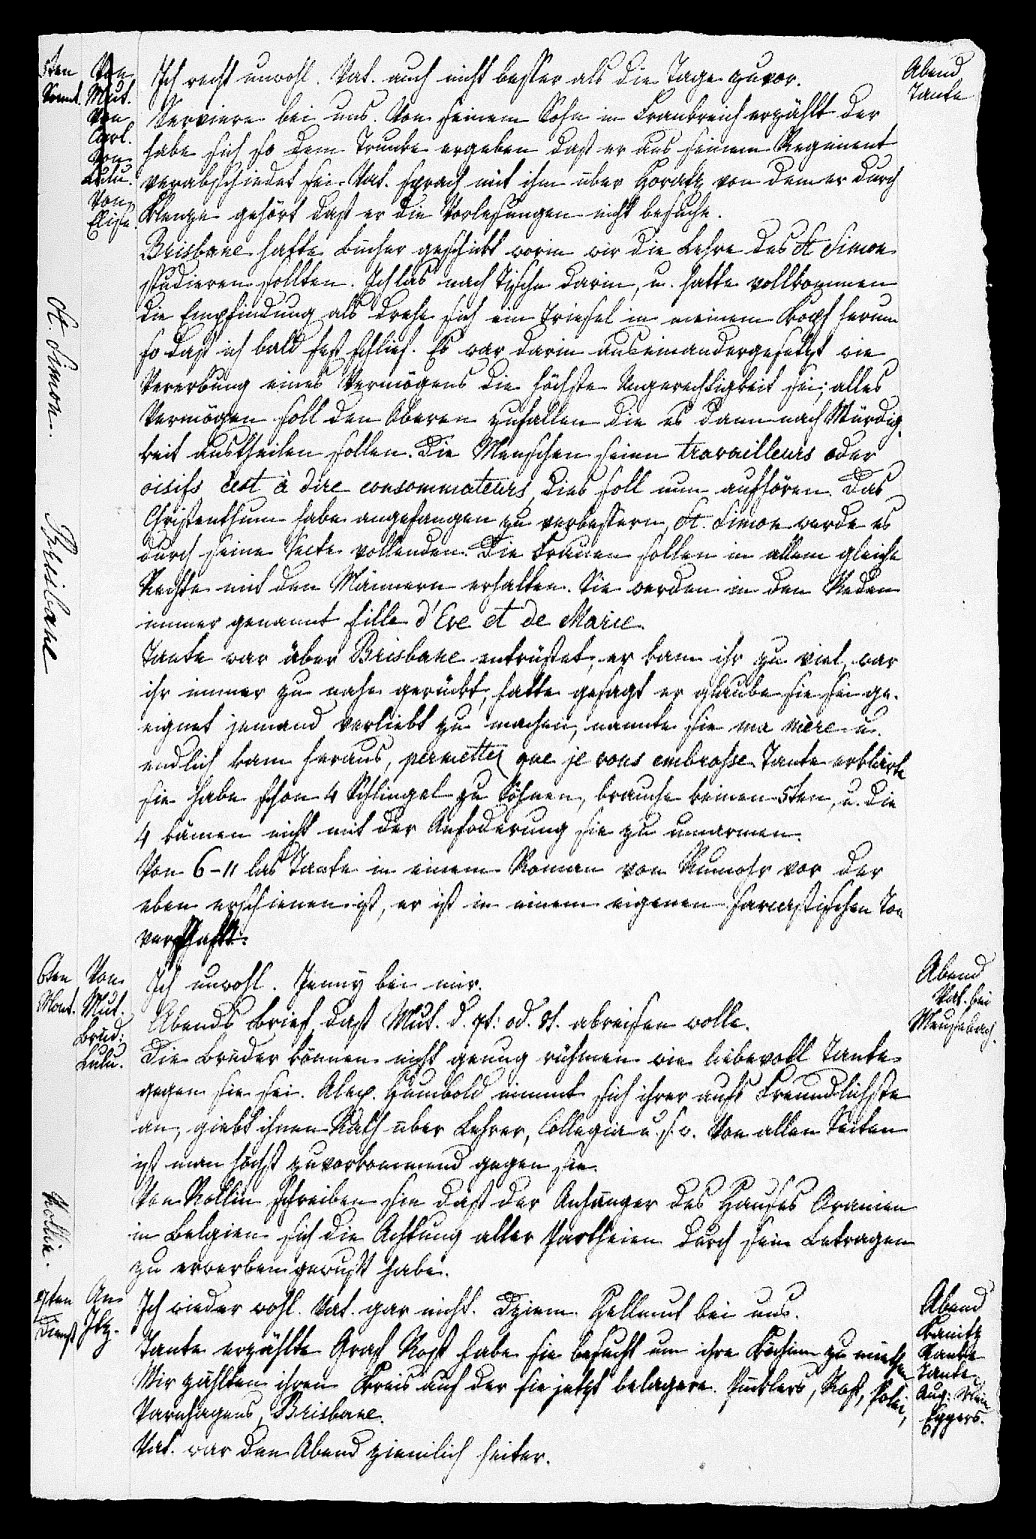 5ten
Sonnt.
Von
Mut.
Von
Carl.
Von
Lulu.
Von
Elise.
Abend
Tante
Ich recht unwohl. Vat. auch nicht besser als die Tage zuvor.
Verviere bei uns. Von seinem Sohn in Frankreich erzählt der
habe sich so dem Trunke ergeben daß er aus seinem Regiment
verabschiedet sei. Vat. sprach mit ihm über Horatz von dem er durch
Klenze gehört daß er die Vorlesungen nicht besuche.
Brisbane hatte Bücher geschickt worin wir die Lehre des St Simon
studieren sollten. Ich las nach Tische darin, u. hatte vollkommen
die Empfindung als drehe sich ein Triesel in meinem Kopf herum
so daß ich bald fest schlief. Es war darin auseinandergesetzt wie
Vererbung eines Vermögens die höchste Ungerechtigkeit sei, alles
Vermögen soll den Oberen zufallen die es dann nach Würdig-
keit austheilen sollen. Die Menschen seien travailleurs oder
oisifs c'est à dire consommateurs, dies soll nun aufhören. Das
Christenthum habe angefangen zu verbessern, St. Simon werde es
durch seine Secte vollenden. Die Frauen sollen in allem gleiche
Rechte mit den Männern erhalten. Sie werden in den Reden
immer genannt fille d'Eve et de Marie
Tante war über Brisbane entrüstet, er kam ihr zu viel, war
ihr immer zu nahe gerückt, hatte gesagt er glaube sie sei ge-
eignet jemand verliebt zu machen, nannte sie ma mère u.
endlich kam heraus, permettez que je vous embrasse. Tante erklärte
sie habe schon 4 Schlingel zu Söhnen, brauche keinen 5ten, u. die
4 kämen nicht mit der Anfoderung sie zu umarmen.
Von 6-11 las Tante in einem Roman von Rumohr vor der
eben erschienen ist, er ist in einem eigenen sarcastischen Ton
verfaßt.
St. Simon.
Brisbane
6ten
Mont.
Von
Mut.
Brüd:
Lulu.
Abend
Vat. bei
Meusebach.
Ich unwohl. Jenny bei mir.
Abends Brief, daß Mut. d. 7t: od. 8t. abreisen wolle.
Die Brüder können nicht genug rühmen wie liebevoll Tante
gegen sie sei. Alex. Humbold nimmt sich ihrer aufs Freundlichste
an, giebt ihnen Rath über Lehrer, Collegia u. s. w. Von allen Seiten
ist man höchst zuvorkommend gegen sie.
Von Rollin schreiben sie daß der Anhänger des Hauses Oranien
in Belgien sich die Achtung aller Partheien durch sein Betragen
zu erwerben gewußt habe.
Rollin.
7ten
Dienst
An
Itz.
Abend
Kanitz
Tante
Aug:
Eggers.
Ich wieder wohl. Vat. gar nicht. Hellmut bei uns.
Tante erzählte Graf Roß habe sie besucht um ihre Köchin zu miethen
Wir zählten ihren Kreis auf der sie jetzt belagere. Pücklers, Roß,
Varnhagens, Brisbane.
Vat. war den Abend ziemlich heiter.